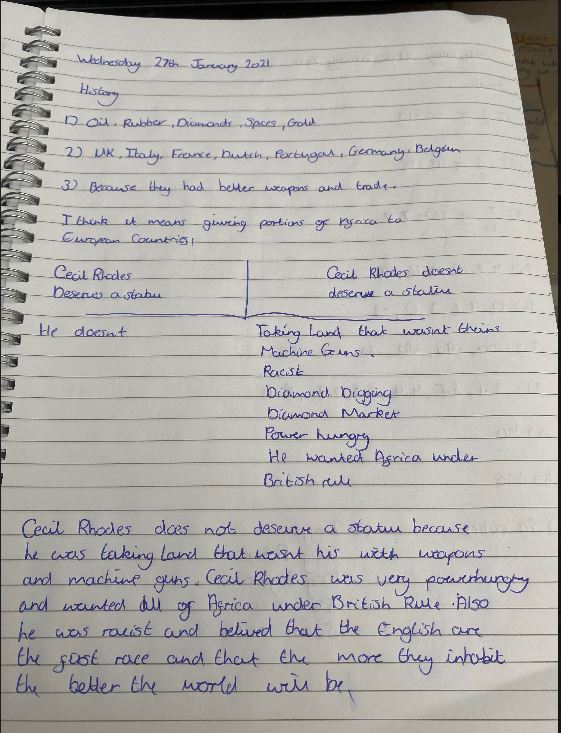 Wednesday 27th January 2021
History
1) Oil, Rubber, Diamonds, Spices, Gold
2) UK, Italy, France, Dutch, Portugal, Germany, Belgium
3) Because they had better weapons and trade.
I think it means giving portions of Africa to
European Countries,
Cecil Rhodes
Deserves a statue
Cecil Rhodes doesnt
deserve a statue
He doesnt
Taking Land that wasnt theirs
Machine Guns.
Racist
Diamond Digging
Diamond Market
Power hungry
He wanted Africa under
British rule
Cecil Rhodes does not deserve a statue because
he was taking land that wasnt his with weapons
and machine guns. Cecil Rhodes was very powerhungry
and wanted all of Africa under British Rule. Also
he was racist and belived that the English are
the first race and that the more they inhabit
the better the world will be,